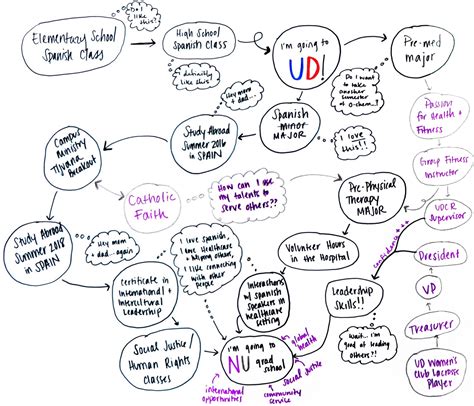 Do I
like this?
Elementary School
Spanish Class
High School
Spanish Class
definitely
like this!
i'm going to
UD!
Pre-med
major
Do I want
to take
another
semester of
o-chem...?
Passion
for Health +
Fitness
Hey mom
+ dad...
Spanish
minor
MAJOR
I love
this!!
Study Abroad
Summer 2016
in SPAIN
Campus
Ministry
Tijuana
Breakout
Group Fitness
Instructor
Catholic
Faith
How can I use
my talents to
serve others??
Pre-Physical
Therapy
MAJOR
UDCR
Supervisor
Study Abroad
Summer 2018
in SPAIN
Hey mom
+ dad...again
I love Spanish,
I love Healthcare
+ helping others,
I like connecting
with other
people
Volunteer Hours
in the Hospital
confidence +++
President
Certificate in
International +
Intercultural
Leadership
Interactions
w/ Spanish
speakers in
healthcare
setting
Leadership
Skills!!
VP
Wait... i'm
good at leading
others??!
Treasurer
Social Justice/
Human Rights
Classes
i'm going to
NU grad
school
global
health
social justice
community
service
international
opportunities
UD Women's
Club Lacrosse
Player